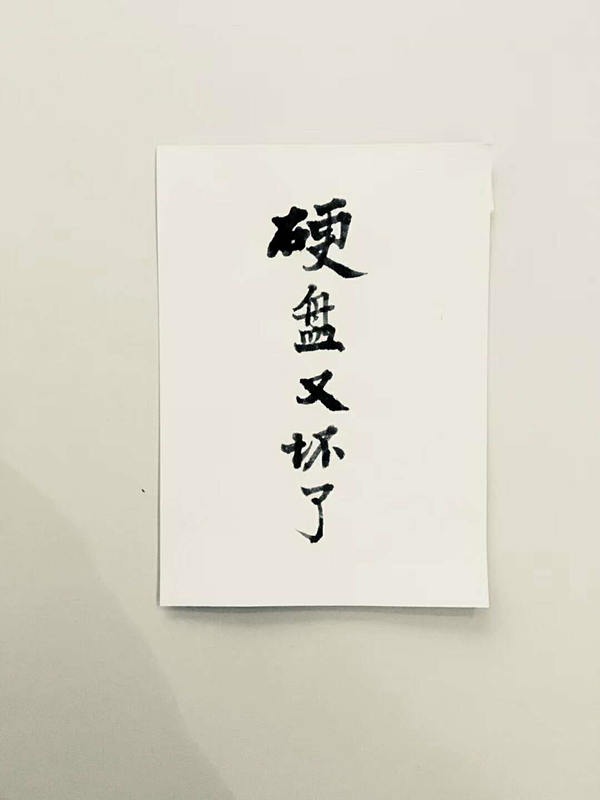 硬盘又坏了